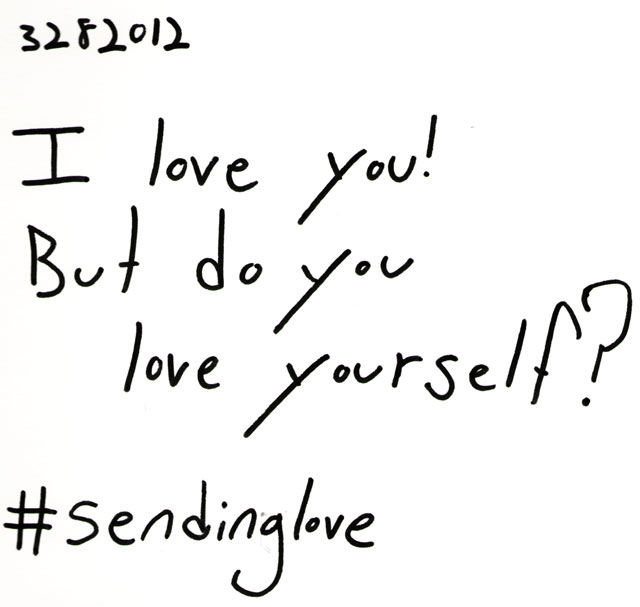 3282012
I love you!
But do you
love yourself?
#sendinglove